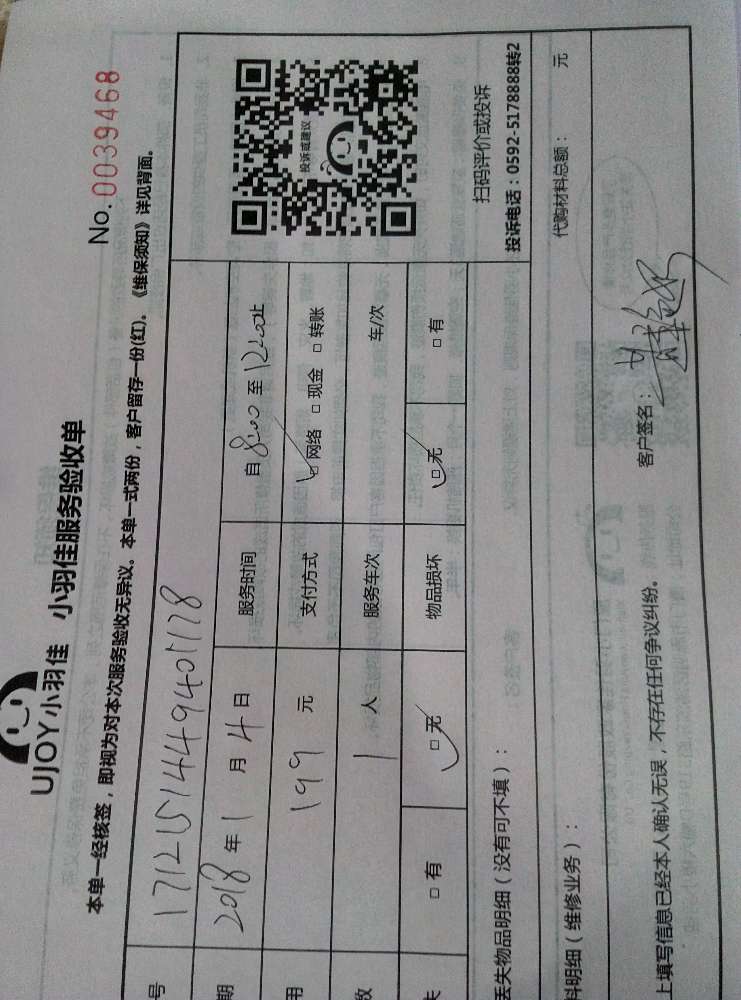 UJOY小羽佳 小羽佳服务验收单
No. 0039468
本单一经核签，即视为对本次服务验收无异议。本单一式两份，客户留存一份(红)。《维保须知》详见背面。
号 1712151449401178
期 2018年1月4日 服务时间 自8:00至12:00止
用 199 元 支付方式 □网络 □现金 □转账
数 1 人 服务车次 车/次
失 □有 □无 物品损坏 □无 □有
投诉或建议
扫码评价或投诉
投诉电话：0592-5178888转2
丢失物品明细（没有可不填）：
料明细（维修业务）： 代购材料总额： 元
上填写信息已经本人确认无误，不存在任何争议纠纷。 客户签名：